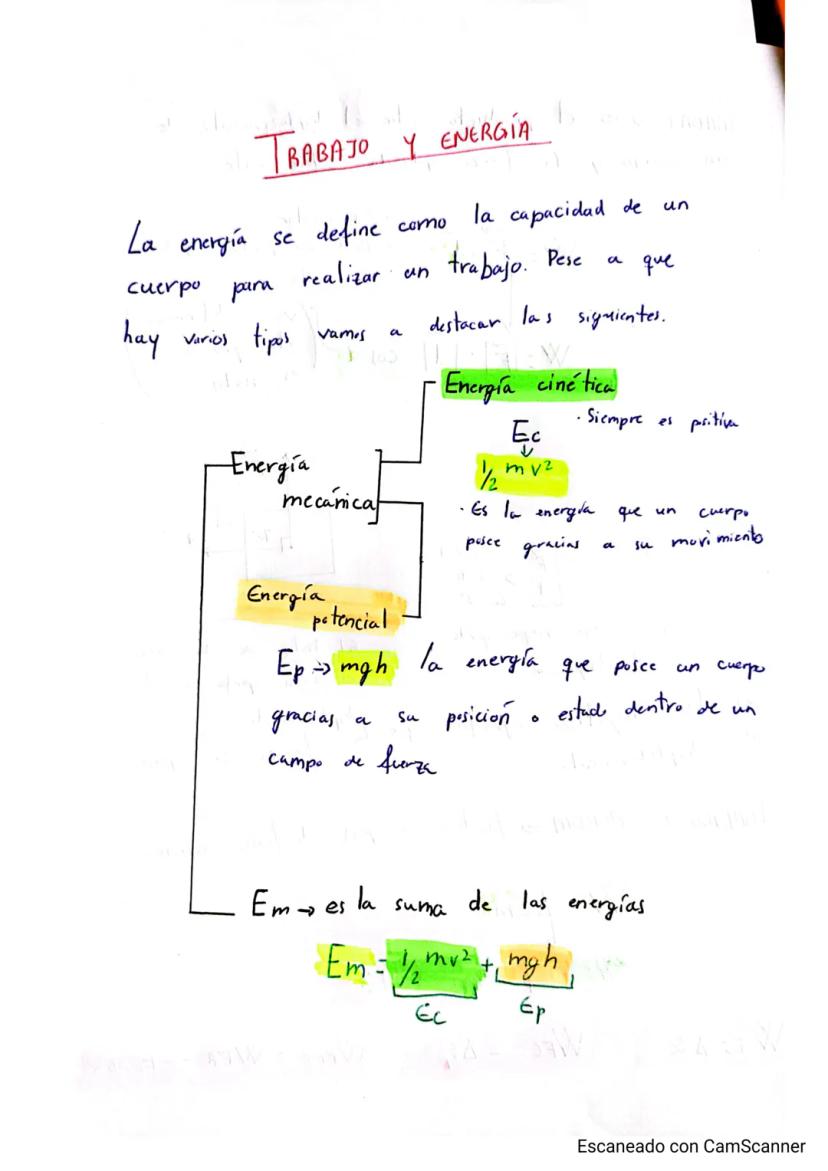 TRABAJO Y ENERGÍA
La energía se define como la capacidad de un
cuerpo para realizar un trabajo. Pese a que
hay varios tipos vamos a destacar las siguientes.
Energía cinética
· Siempre es psitiva
Ec
↓
1/2 mv²
· Es la energía que un cuerpo
posee gracias a su movimiento
Energía
mecánica
Energía
potencial
Ep → mgh la energía que posee un cuerpo
gracias a su posición o estado dentro de un
campo de fuerza
Em → es la suma de las energías
Em = 1/2 mv² + mgh
Ec Ep
Escaneado con CamScanner